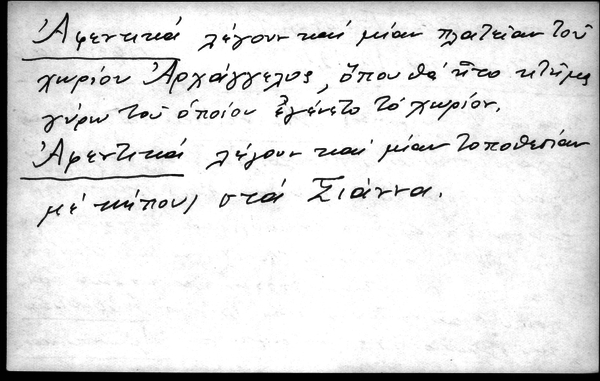 Ἀφεντικά λέγουν καί μίαν πλατεῖαν τοῦ
χωρίου Ἀρχάγγελος, ὅπου θά ἦτο κτῆμα
γύρω τοῦ ὁποίου ἐγένετο τό χωρίον.
Ἀφεντικά λέγουν καί μίαν τοποθεσίαν
μέ κήπους στά Σιάννα.